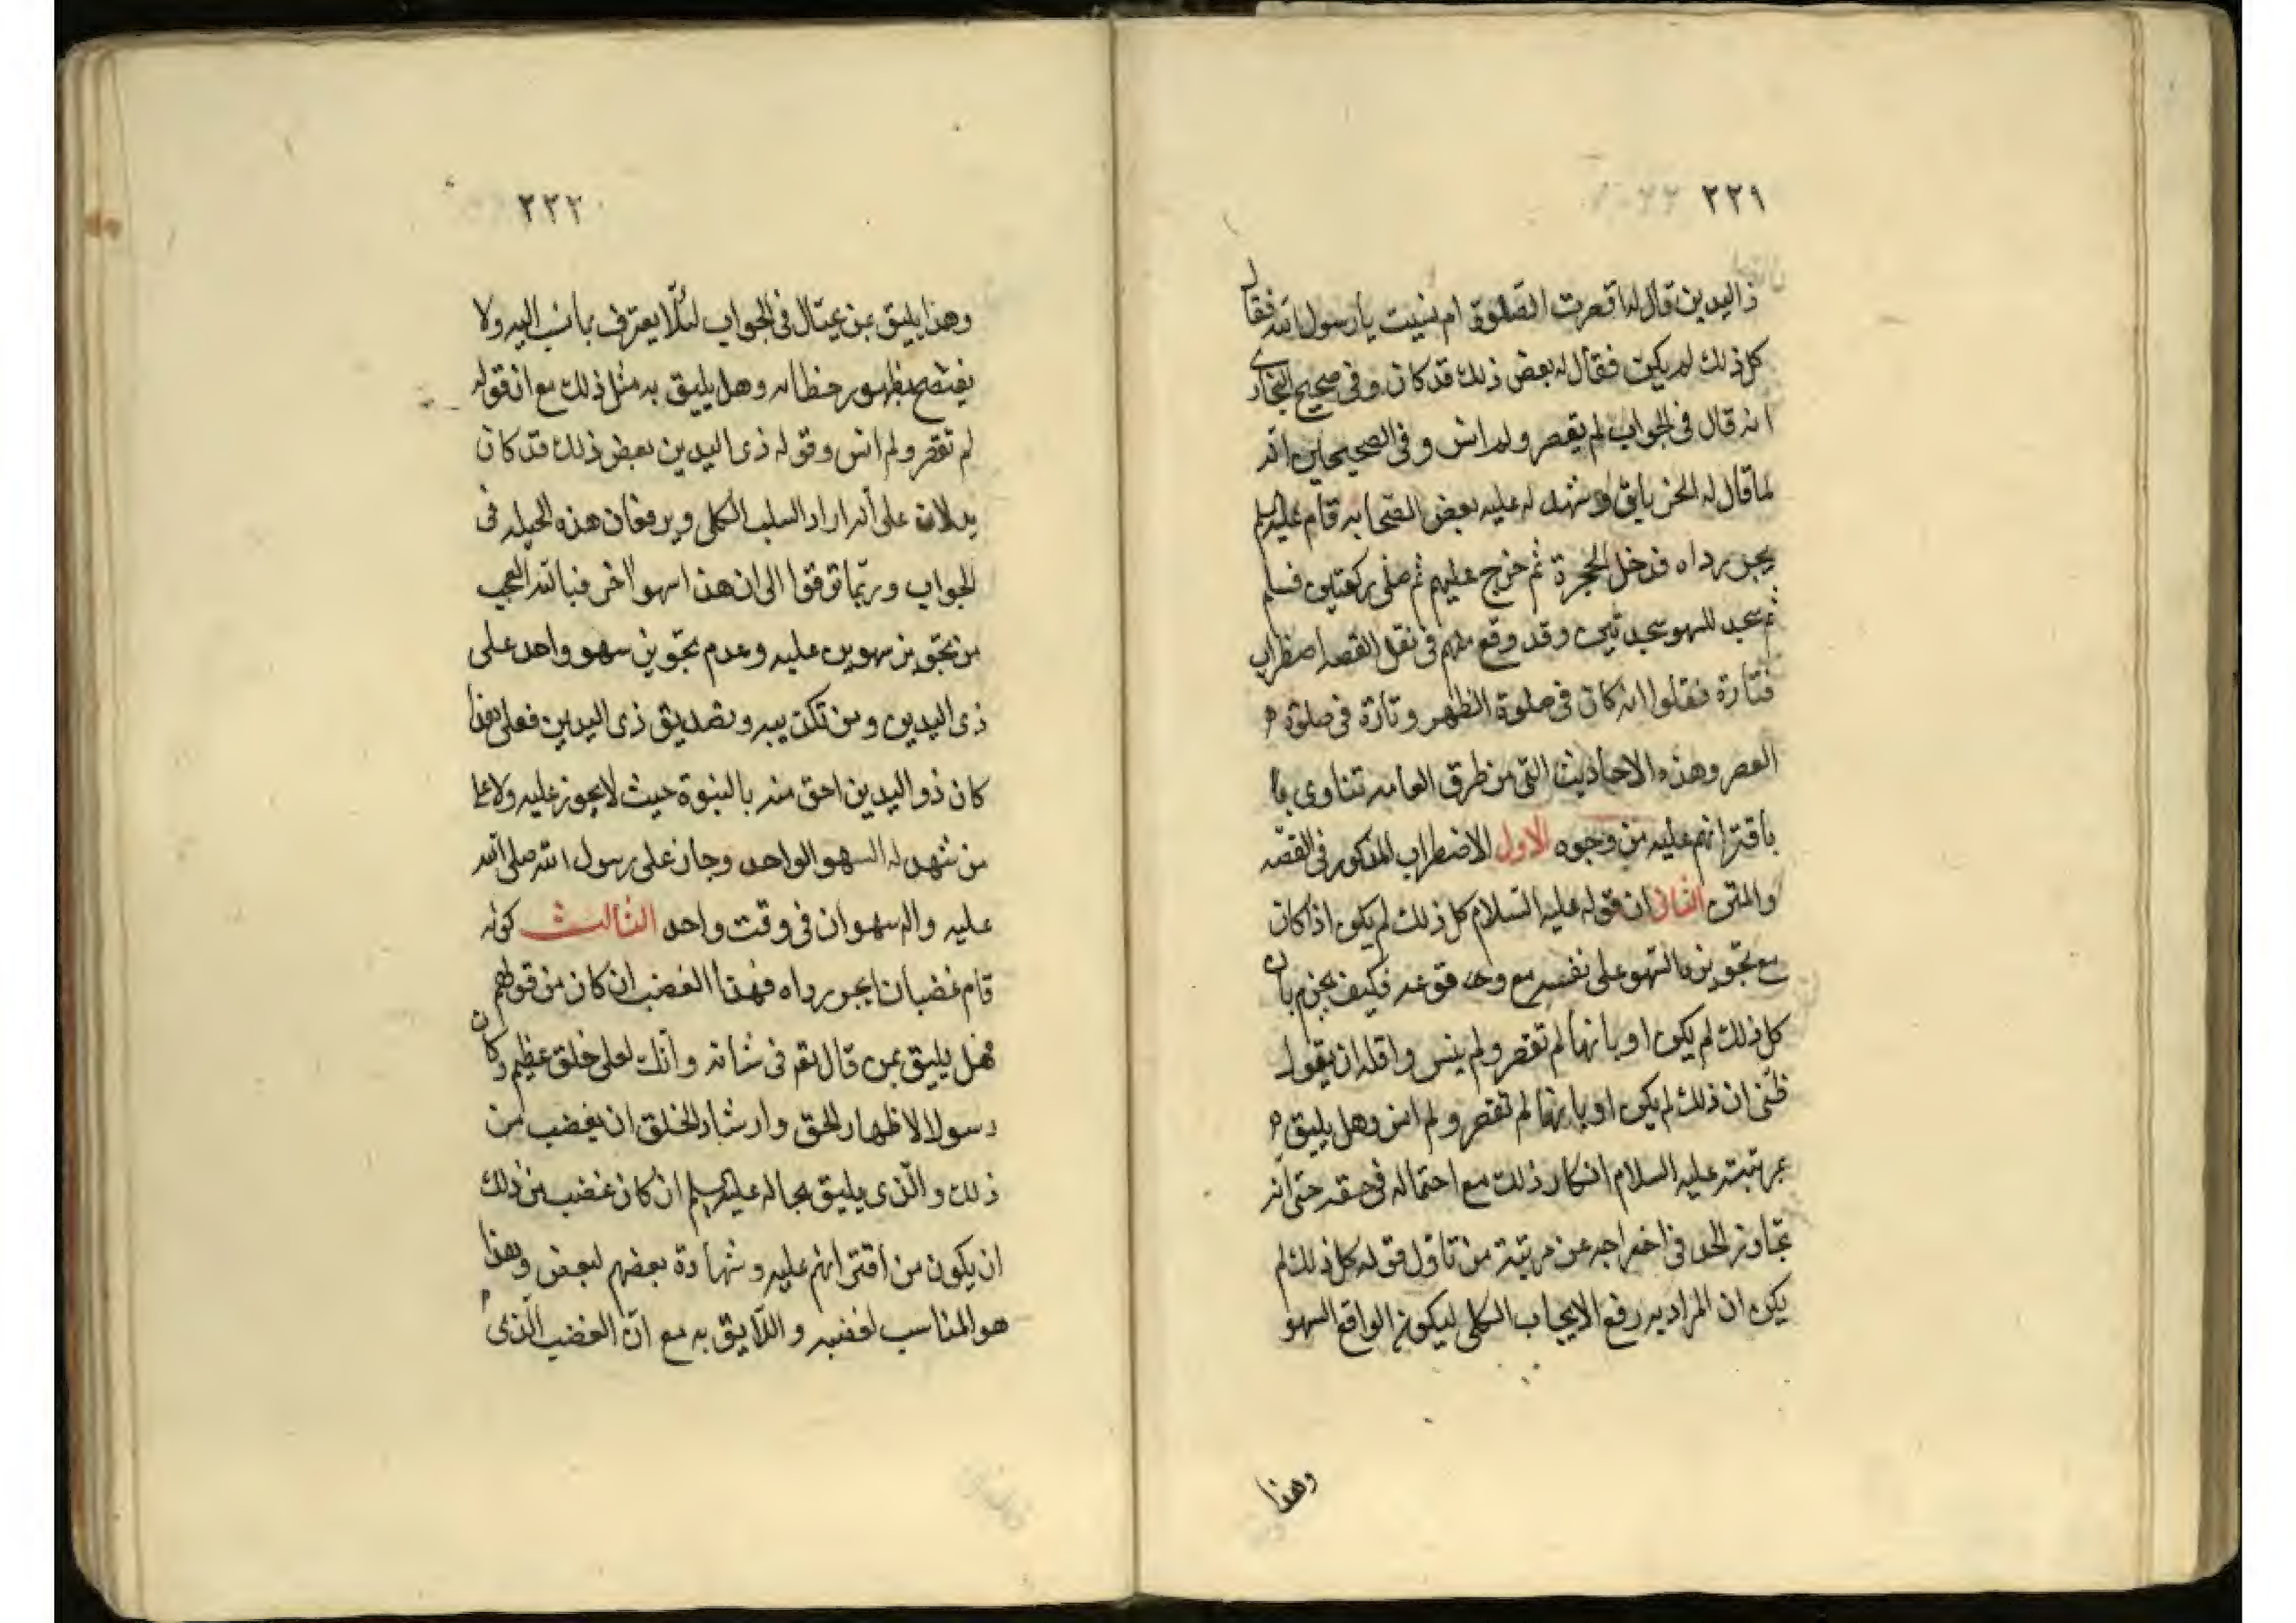 ٢٢١
ذا اليدين قال له اقصرت الصلوة ام نسيت يا رسول الله فقال
كل ذلك لم يكن فقال له بعض ذلك قد كان وفى صحيح البخارى
انه قال فى الجواب لم يقصر ولم انس وفى الصحيحين انه
لما قال له الخرباق وشهد له عليه بعض الصحابه قام عليه السلم
يجر رداه فدخل الحجرة ثم خرج عليهم ثم صلى ركعتين فسلم
ثم سجد للسهو سجدتين وقد وقع منهم فى نقل القصه اضطراب
فتارة فقلوا انه كان فى صلوة الظهر وتارة فى صلوة
العصر وهذه الاحاديث التى من طرق العامه تنادى
باقترانهم عليه من وجوه الاول الاضطراب المذكور فى القصّه
والمتن الثانى ان قوله عليه السلام كل ذلك لم يكن اذا كان
مع تجويزه السهو على نفسه مع وقوعه فكيف يجزم بان
كل ذلك لم يكن او بانها لم تقصر ولم ينس واقله ان يقول
ظنى ان ذلك لم يكن او بانها لم تقصر ولم انس وهل يليق
بمرتبته عليه السلام انكار ذلك مع احتماله فى حقه حتى انه
تجاوز الحد فى اخراجه عن مرتبته من تاول قوله كل ذلك لم
يكن ان المراد به رفع الايجاب الكلى ليكون الواقع السهو
وهذا
٢٢٢
وهذا يليق بمن يحتال فى الجواب لئلّا يعترف بما نسب اليه ولا
يفتضح بظهور خطائه وهل يليق به مثل ذلك مع ان قوله
لم تقصر ولم انس وقوله ذى اليدين بعض ذلك قد كان
يدلان على أنه اراد السلب الكلى ويرفعان هذه الحيله فى
الجواب وربّما توقفوا الى ان هذا سهوا اخر فبالله العجب
من تجويز سهوين عليه وعدم تجويز سهو واحد على
ذى اليدين ومن تكذيبه وتصديق ذى اليدين فعلى هذا
كان ذو اليدين احق منه بالنبوة حيث لا يجوز عليه ولا على
من شهد له السهو الواحد وجاز على رسول الله صلى الله
عليه واله سهوان فى وقت واحد الثالث كونه
قام غضبانا يجر رداه فهذا الغضب ان كان من قولهم
فهل يليق بمن قال تعم فى شانه وانك لعلى خلق عظيم وكان
رسولا لاظهار الحق وارشاد الخلق ان يغضب من
ذلك والّذى يليق بحاله عليه السلم ان كان غضب من ذلك
ان يكون من اقترانهم عليه وشهادة بعضهم لبعض وهذا
هو المناسب لغضبه واللّايق به مع انّ الغضب الّذى